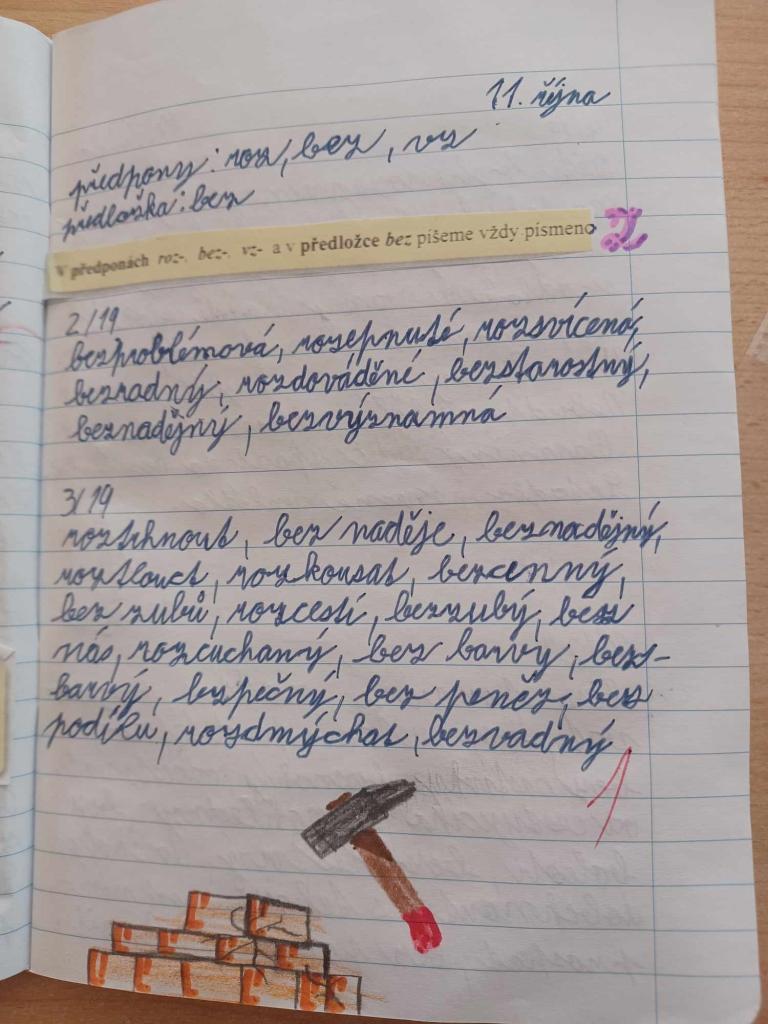 11. října
předpony: roz, bez, vz
předložka: bez
V předponách roz-, bez-, vz- a v předložce bez píšeme vždy písmeno Z
2/19
bezproblémová, rozepnuté, rozsvícená,
bezradný, rozdováděné, bezstarostný,
beznadějný, bezvýznamná
3/19
roztrhnout, bez naděje, beznadějný,
roztlouct, rozkousat, bezcenný,
bez zubů, rozcestí, bezzubý, bez
nás, rozcuchaný, bez barvy, bez-
barvý, bezpečný, bez peněz, bez
podílu, rozdmýchat, bezvadný
1